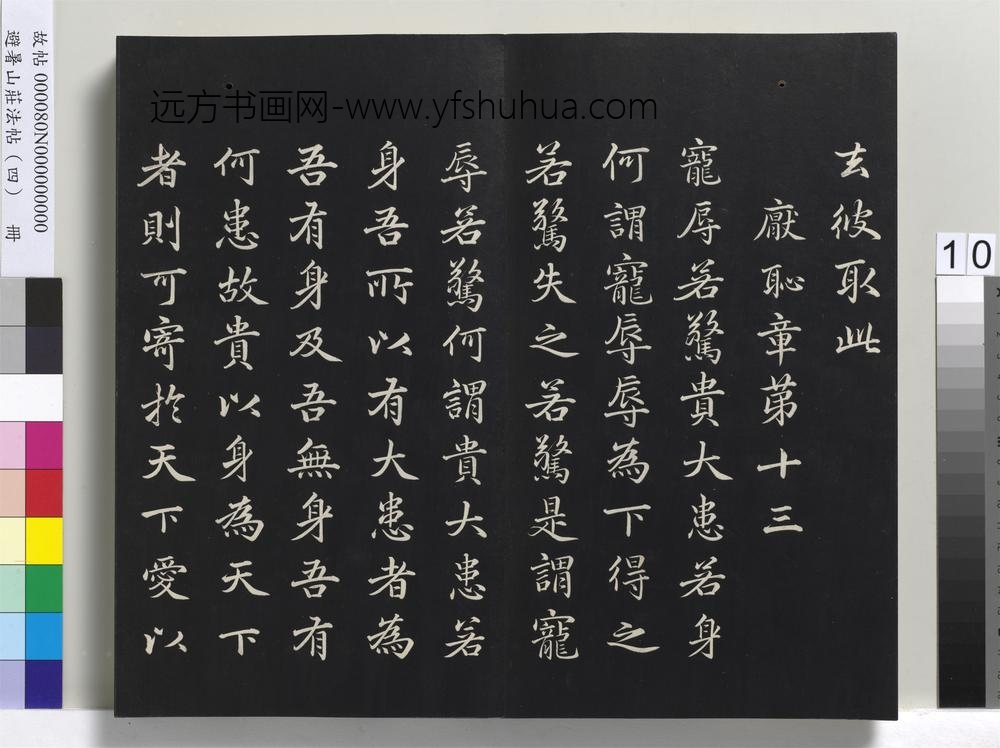 去彼取此
厭恥章苐十三
寵辱若驚貴大患若身
何謂寵辱辱為下得之
若驚失之若驚是謂寵
辱若驚何謂貴大患若
身吾所以有大患者為
吾有身及吾無身吾有
何患故貴以身為天下
者則可寄於天下愛以
远方书画网-www.yfshuhua.com
故帖 000080N000000000
避暑山莊法帖（四） 冊
10